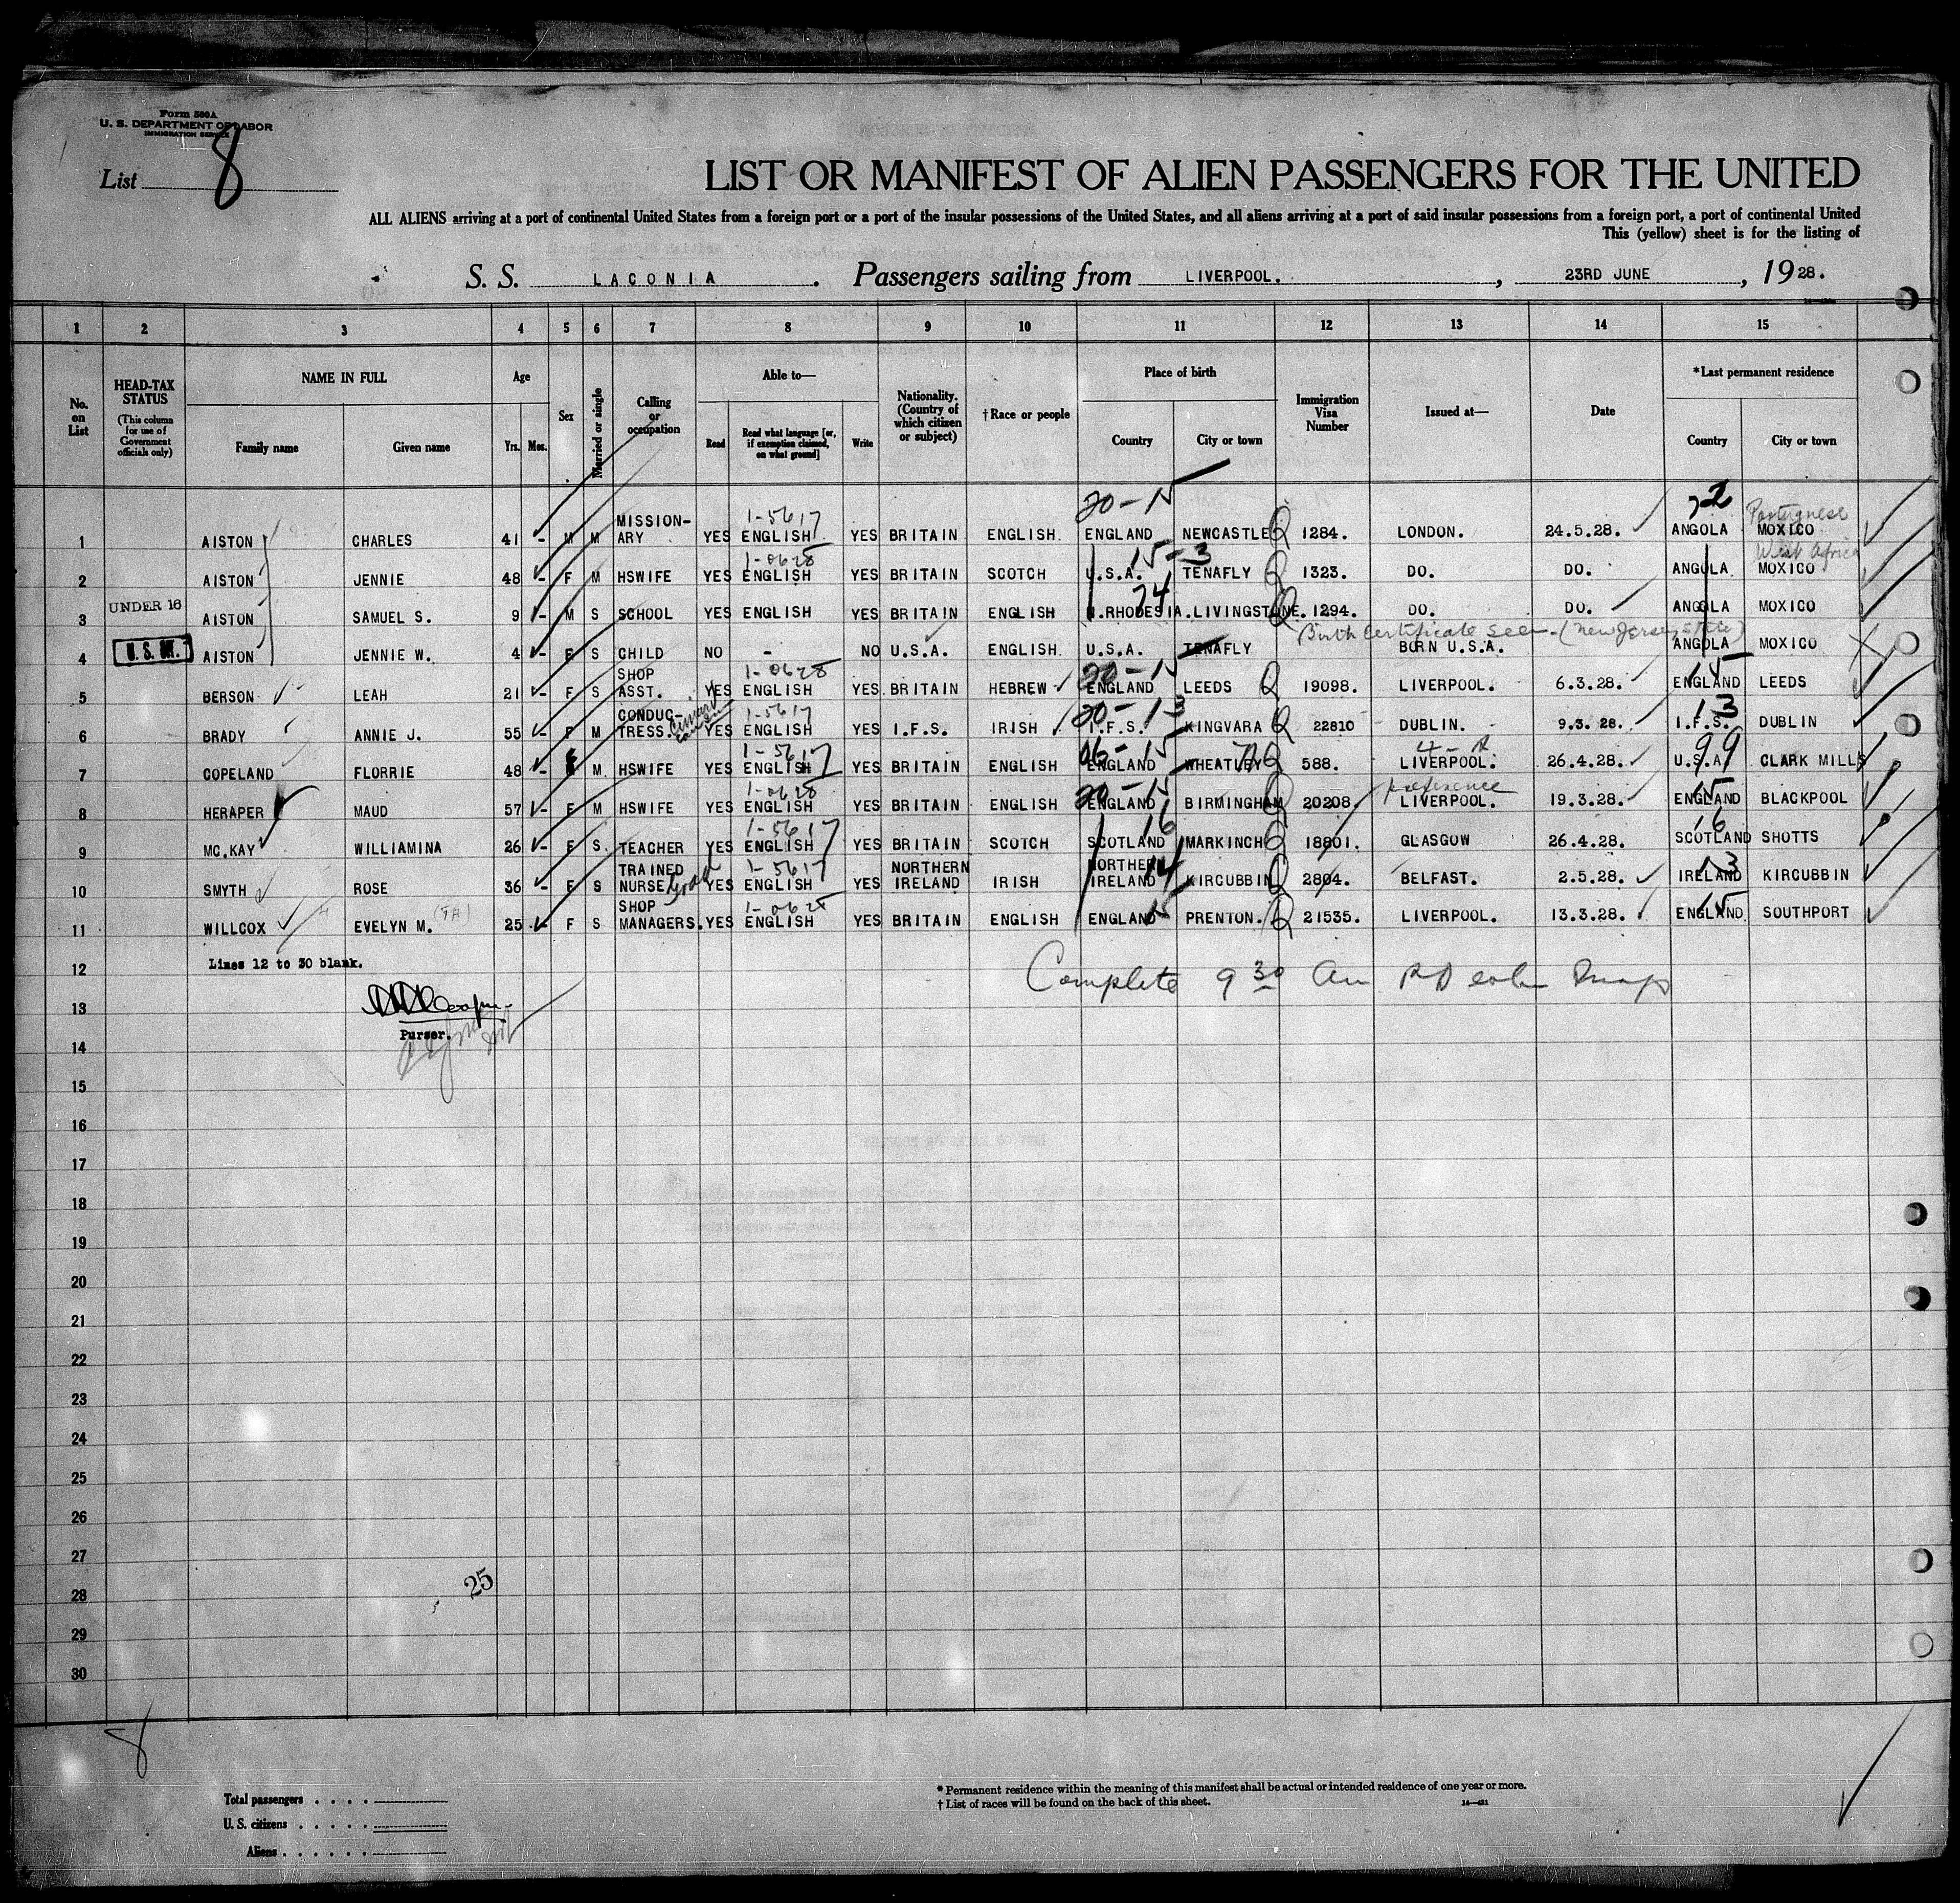 Form 500A
U. S. DEPARTMENT OF LABOR
IMMIGRATION SERVICE
List 8
LIST OR MANIFEST OF ALIEN PASSENGERS FOR THE UNITED
ALL ALIENS arriving at a port of continental United States from a foreign port or a port of the insular possessions of the United States, and all aliens arriving at a port of said insular possessions from a foreign port, a port of continental United
This (yellow) sheet is for the listing of
S. S. LACONIA . Passengers sailing from LIVERPOOL. , 23RD JUNE , 1928.
1 2 3 4 5 6 7 8 9 10 11 12 13 14 15
No. on List
HEAD-TAX STATUS (This column for use of Government officials only)
NAME IN FULL Family name Given name
Age Yrs. Mos.
Sex
Married or single
Calling or occupation
Able to— Read Read what language [or, if exemption claimed, on what ground] Write
Nationality. (Country of which citizen or subject)
†Race or people
Place of birth Country City or town
Immigration Visa Number
Issued at—
Date
*Last permanent residence Country City or town
20-15 22 Portuguese
1-5617
1 AISTON CHARLES 41 - M M MISSION-ARY YES ENGLISH YES BRITAIN ENGLISH. ENGLAND NEWCASTLE Q 1284. LONDON. 24.5.28. ANGOLA MOXICO
1-0628 15-3 West Africa
2 AISTON JENNIE 48 - F M HSWIFE YES ENGLISH YES BRITAIN SCOTCH U.S.A. TENAFLY Q 1323. DO. DO. ANGOLA MOXICO
UNDER 16 74
3 AISTON SAMUEL S. 9 - M S SCHOOL YES ENGLISH YES BRITAIN ENGLISH N.RHODESIA. LIVINGSTONE. 1294. DO. DO. ANGOLA MOXICO
Birth Certificate seen - (New Jersey State)
4 AISTON JENNIE W. 4 - F S CHILD NO - NO U.S.A. ENGLISH. U.S.A. TENAFLY BORN U.S.A. ANGOLA MOXICO
1-0628 20-15 15
5 BERSON LEAH 21 - F S SHOP ASST. YES ENGLISH YES BRITAIN HEBREW ENGLAND LEEDS Q 19098. LIVERPOOL. 6.3.28. ENGLAND LEEDS
1-5617 20-13 13
6 BRADY ANNIE J. 55 - F M CONDUC-TRESS. YES ENGLISH YES I.F.S. IRISH I.F.S. KINGVARA Q 22810 DUBLIN. 9.3.28. I.F.S. DUBLIN
1-5617 06-15 99
7 COPELAND FLORRIE 48 - F M. HSWIFE YES ENGLISH YES BRITAIN ENGLISH ENGLAND WHEATLEY Q 588. LIVERPOOL. 26.4.28. U.S.A. CLARK MILLS
1-0628 20-15 preference 15
8 HERAPER MAUD 57 - F M HSWIFE YES ENGLISH YES BRITAIN ENGLISH ENGLAND BIRMINGHAM 20208. LIVERPOOL. 19.3.28. ENGLAND BLACKPOOL
1-5617 16 16
9 MC.KAY WILLIAMINA 26 - F S. TEACHER YES ENGLISH YES BRITAIN SCOTCH SCOTLAND MARKINCH Q 18801. GLASGOW 26.4.28. SCOTLAND SHOTTS
1-5617 14 13
10 SMYTH ROSE 36 - F S TRAINED NURSE Grad YES ENGLISH YES NORTHERN IRELAND IRISH NORTHERN IRELAND KIRCUBBIN Q 2804. BELFAST. 2.5.28. IRELAND KIRCUBBIN
1-0628 15 15
11 WILLCOX EVELYN M. 25 - F S SHOP MANAGERS. YES ENGLISH YES BRITAIN ENGLISH ENGLAND PRENTON. Q 21535. LIVERPOOL. 13.3.28. ENGLAND. SOUTHPORT
U. S.
12 Lines 12 to 30 blank.
Complete 9 30 Am
13
Purser.
14
15
16
17
18
19
20
21
22
23
24
25
26
27
25
28
29
30
8
Total passengers . . . .
U. S. citizens . . . . .
Aliens . . . . . .
* Permanent residence within the meaning of this manifest shall be actual or intended residence of one year or more.
† List of races will be found on the back of this sheet.
14—421